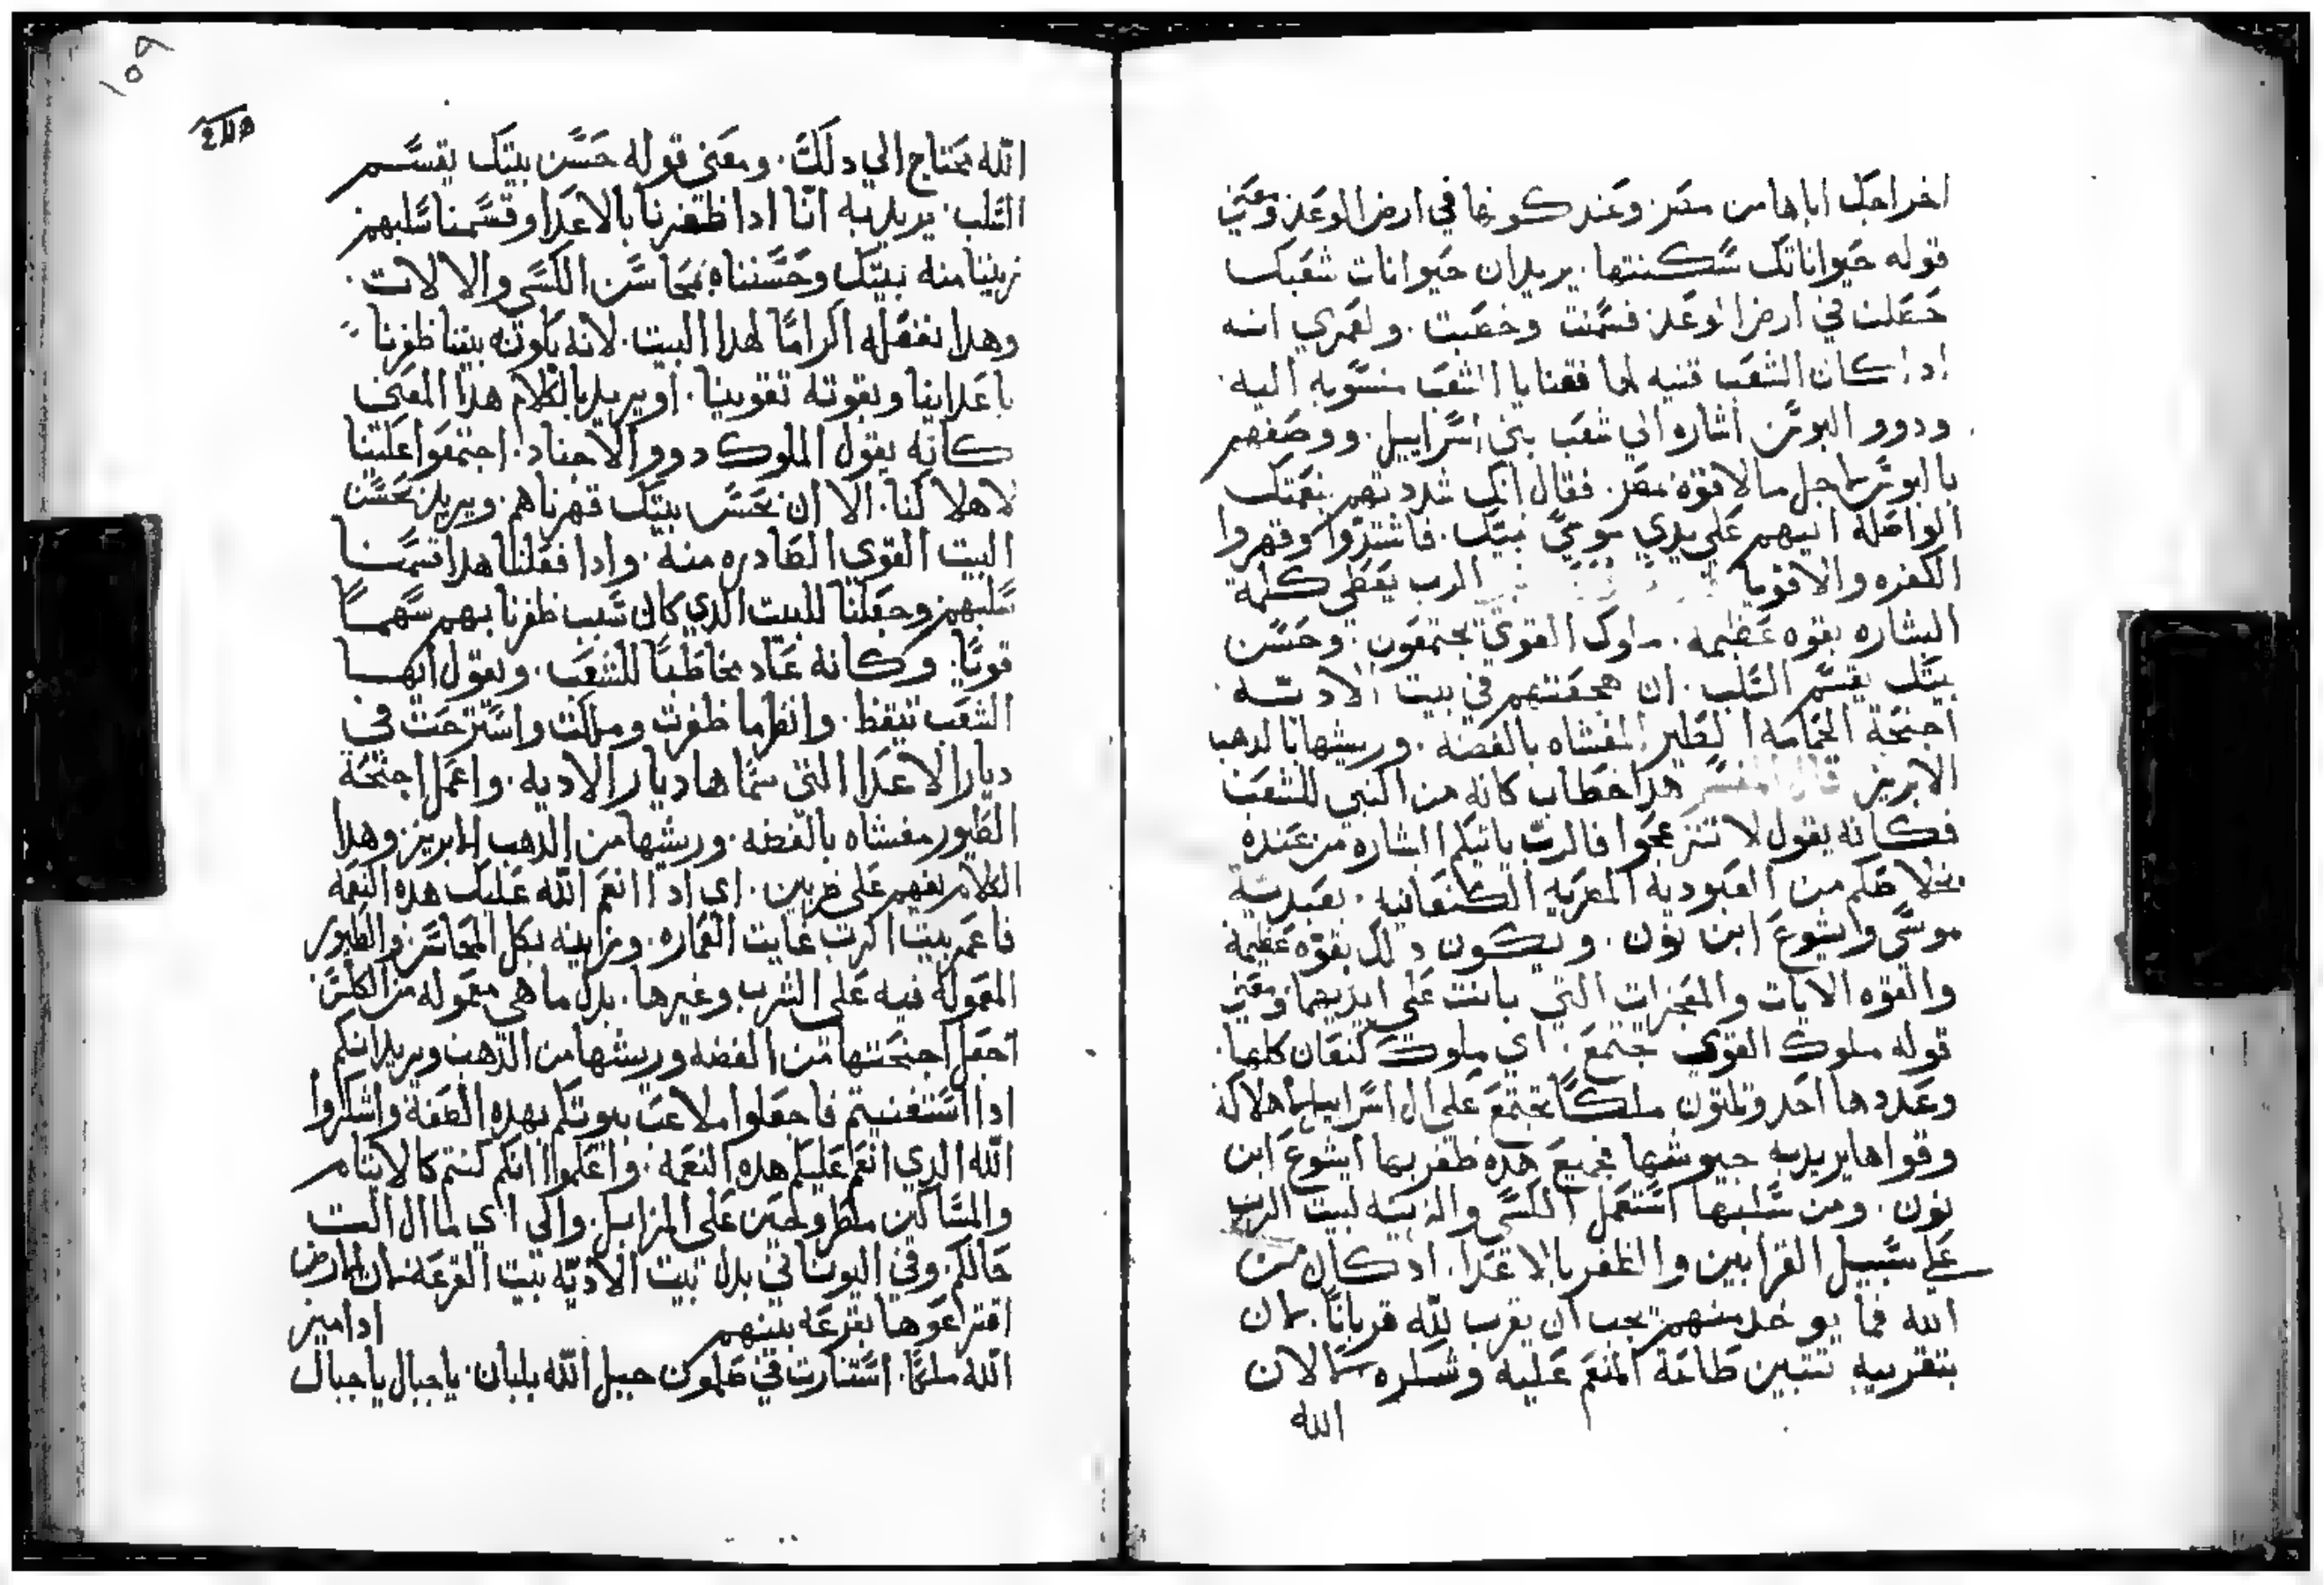 اخراجك اياها من مصر وعند كونها في ارض الوعد ومعني
قوله حيواناتك سكنتها. يريد ان حيوانات شعبك
جعلت في ارض الوعد فسمنت وخصبت. ولعمري انه
ادا كان الشعب قنيه لها فقنايا الشعب منسوبه اليه.
ودوو البوس اشاره الي شعب بني اسراييل. ووصفهم
بالبوس لاجل ما لاقوه بمصر. فقال انك شددتهم بنعمتك
الواصله اليهم علي يدي موسي نبيك. فاشتدوا وقهروا
الكفره والاقويا الرب يعطي كلمة
البشاره بقوه عظيمه. ملوك القوي يجتمعون. وحسن
بيتك يقسم السلب. ان هجعتم في بيت الاديه.
اجنحة الحمامه الطير المغشاه بالفضه. وريشها بالدهب
الابريز قال المفسر هدا خطاب كانه من النبي للشعب
فكانه يقول لا تنزعجوا فالرب ياتيكم البشاره من عنده
بخلاصكم من العبوديه المصريه الكنعانيه. بعبديه
موسي وايشوع ابن نون. ويكون دلك بقوه عظيمه
والقوه الايات والمعجزات التي بانت علي ايديهما ومعني
قوله ملوك القوي يجتمع. اي ملوك كنعان كلها.
وعددها احد وتلتون ملكًا تجتمع علي ال اسراييل لهلاكه
وقواها يريد به جيوشها فجميع هده ظفر بها ايشوع ابن
نون. ومن سلبها استعمل الكسي والزينه لبيت الرب
علي سبيل القرابين والظفر بالاعدا. اد كان من
الله فما يوخد منهم يجب ان يقرب لله قربانًا. لان
بتقريبه تتبين طاعة المنعم عليه وشكره لا لان
الله
١٥٩
الله يحتاج الي دلك. ومعني قوله حسن بيتك يقسم
السلب. يريد به انا ادا ظفرنا بالاعدا وقسمنا سلبهم
زيننا منه بيتك وحسنناه بمحاسن الكسي والالات.
وهدا نفعله اكرامًا لهدا البيت. لانه بكونه بيتنا ظفرنا
باعداينا وبقوته تقوينا. او يريد بالكلام هدا المعني
كانه يقول الملوك دوو الاجناد. اجتمعوا علينا
لاهلاكنا. الا ان بحسن بيتك قهرناهم. ويريد بحسن
البيت القوي الصادره منه. وادا فعلنا هدا قسمنا
سلبهم وجعلنا للبيت الدي كان سبب ظفرنا بهم سهمًا
قويًا. وكانه عاد مخاطبًا للشعب. ويقول ايها
الشعب تيقظ. وانظر ما ظفرت وملكت واسترحت في
ديار الاعدا التي سماها ديار الاديه. واعمل اجنحة
الطيور مغشاه بالفضه. وريشها من الدهب الابريز وهدا
الكلام يفهم على ضربين. اي ادا انعم الله عليك هده النعمه
فاعمر بيت الرب غايت العماره. وزاينه بكل المحاسن والطيور
المعموله فيه على الترب وغيرها. بدل ما هي معموله من الكلس
اجعل اجنحتها من الفضه وريشها من الدهب ويريد انكم
ادا استغنيتم فاجعلوا ملاعب بيوتكم بهده الصفة واشكروا
الله الدي انعم عليكم هده النعمه. واعلموا انكم كنتم كالايتام
والمساكين مطروحين على المزابل. والى اي لما ال الت
حالكم. وفي اليوناني بدل بيت الاديه بيت القرعه لان الارض
اقترعوها بقرعه بينهم ادا ميز
الله ملكًا. استنارت في صلمون جبل الله بلبان. يا جبال يا جبال